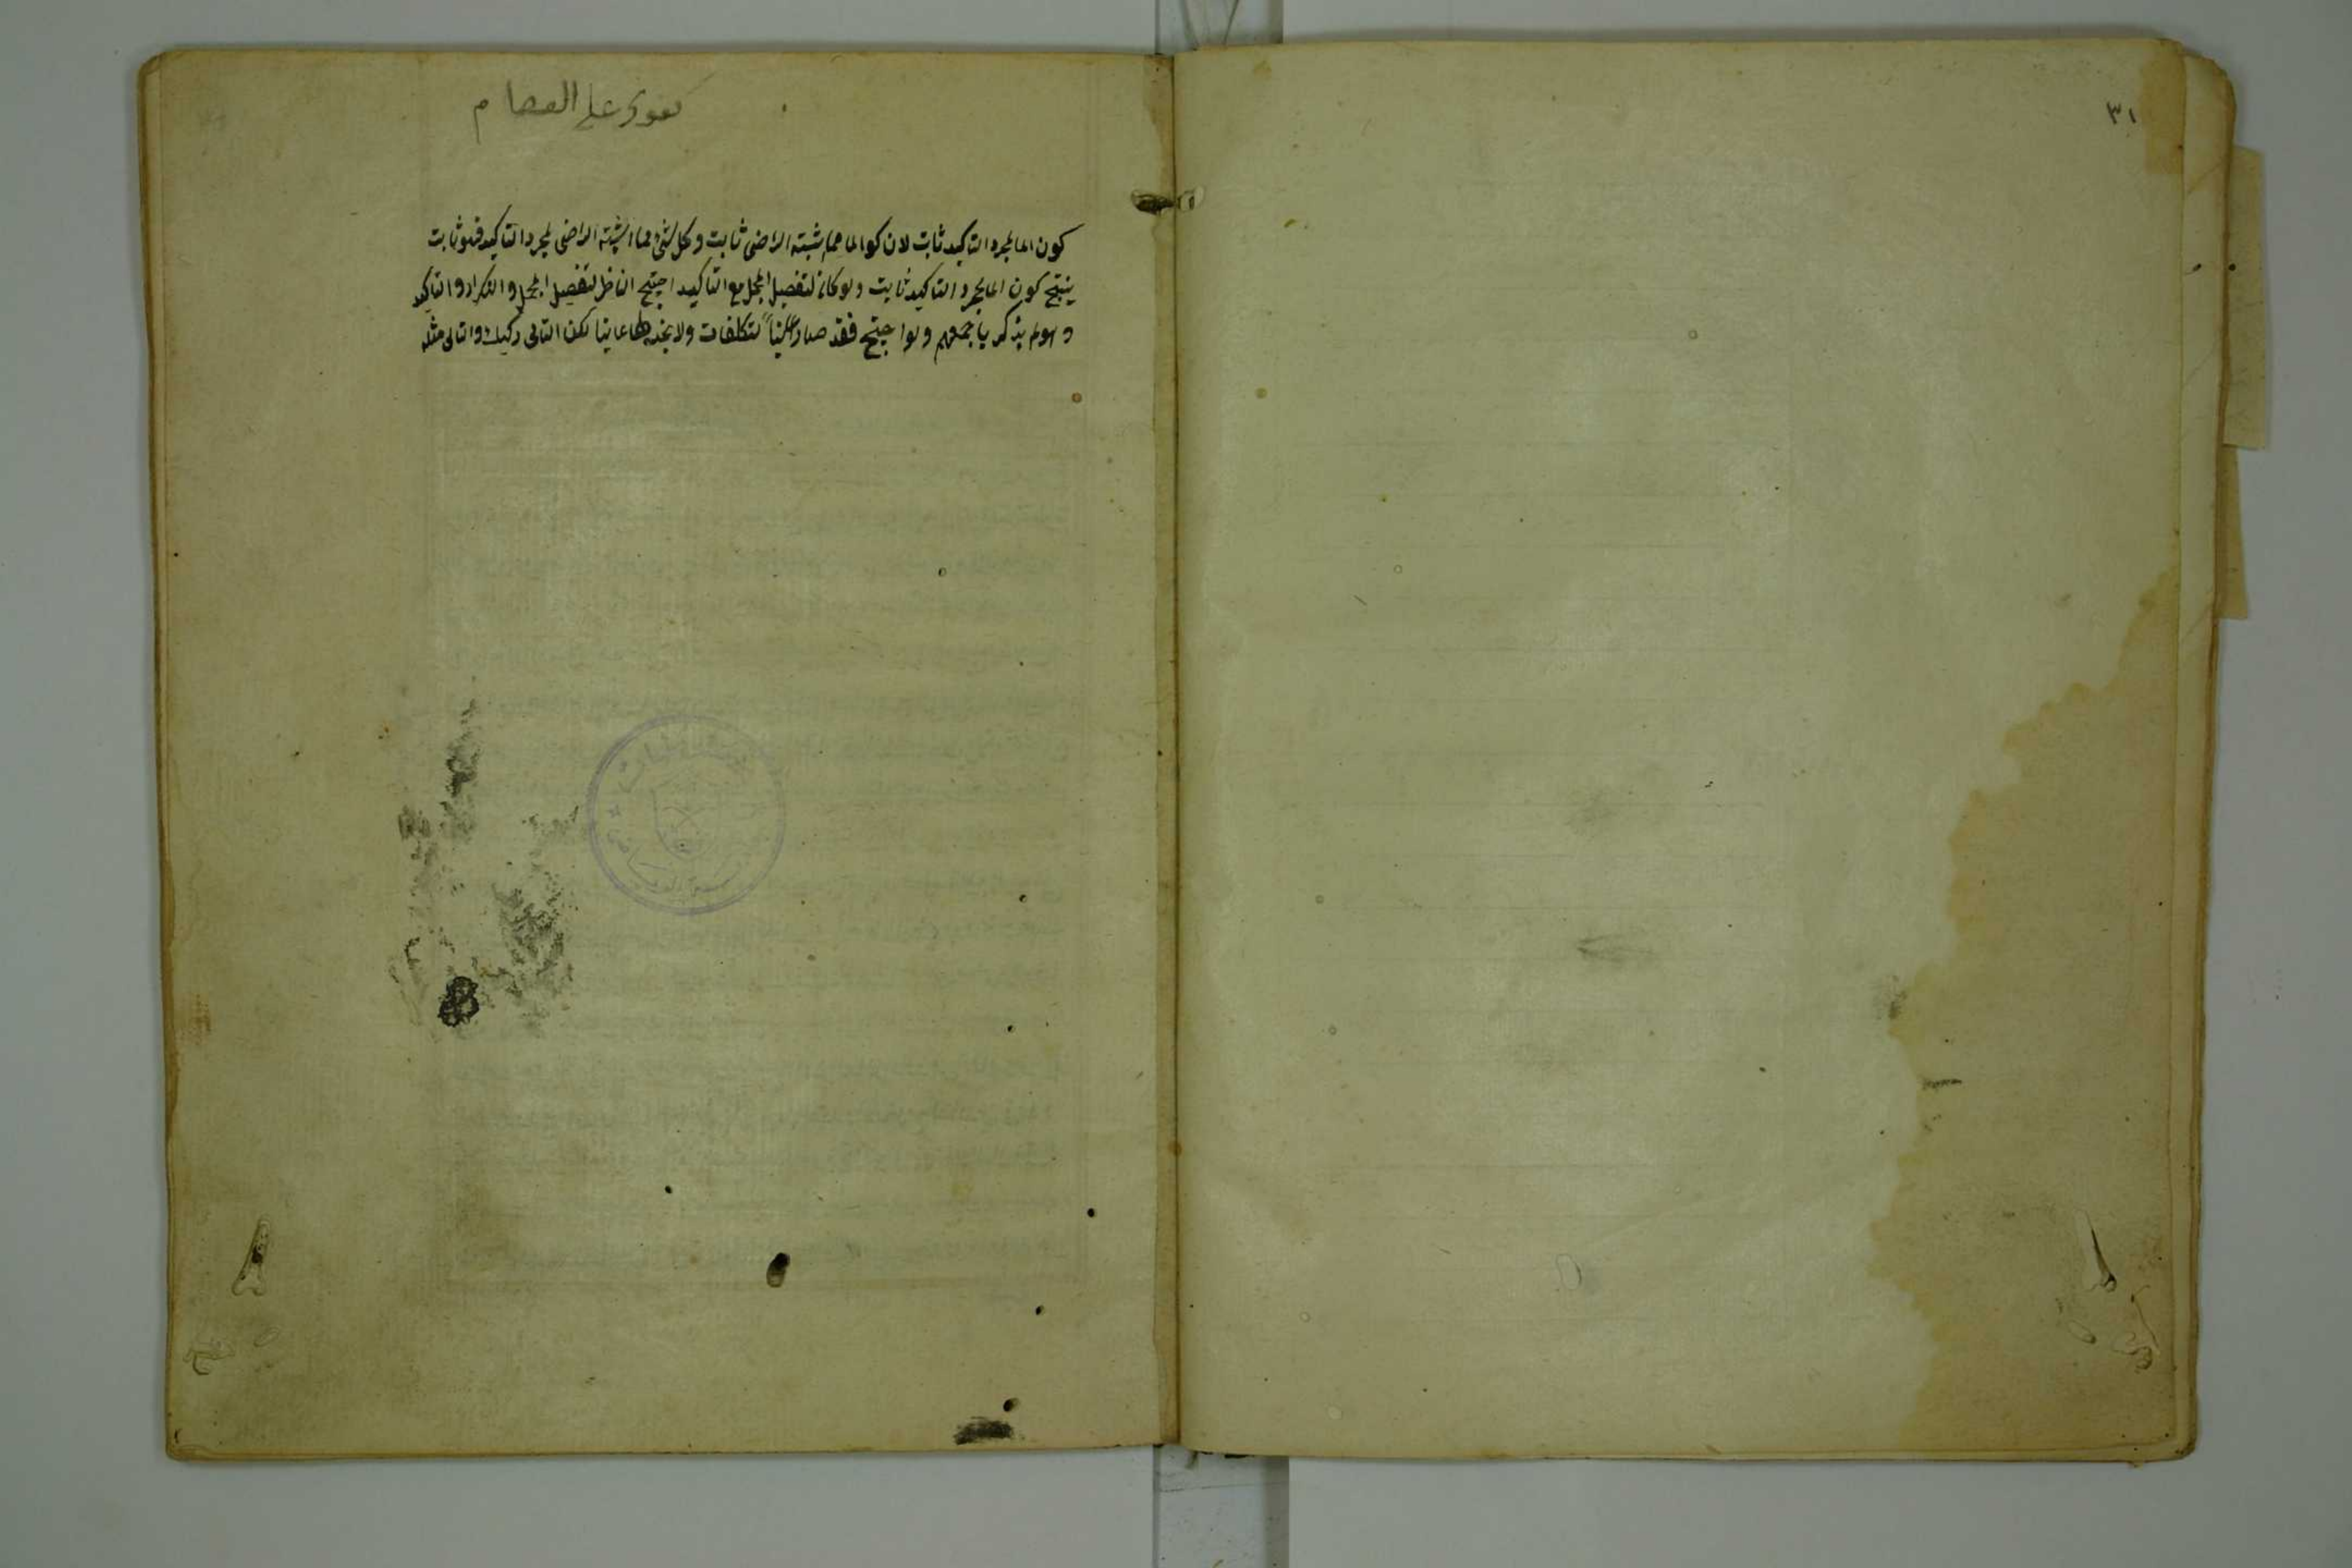 ٣١
كفوى على العصام
كون اما لمجرد التاكيد ثابت لان كون اما مما يثبته الراضى ثابت وكل شئ مما اثبته الراضى لمجرد التاكيد فهو ثابت
ينتج كون اما لمجرد التاكيد ثابت ولو كان لتفصيل المجمل مع التاكيد احتيج الناظر لتفصيل المجمل والتكرار والتاكيد
وهو لم يذكر باجمعهم ولو احتيج فقد صار لتكلفات ولا لكن التالى ركيك والتالى مثله